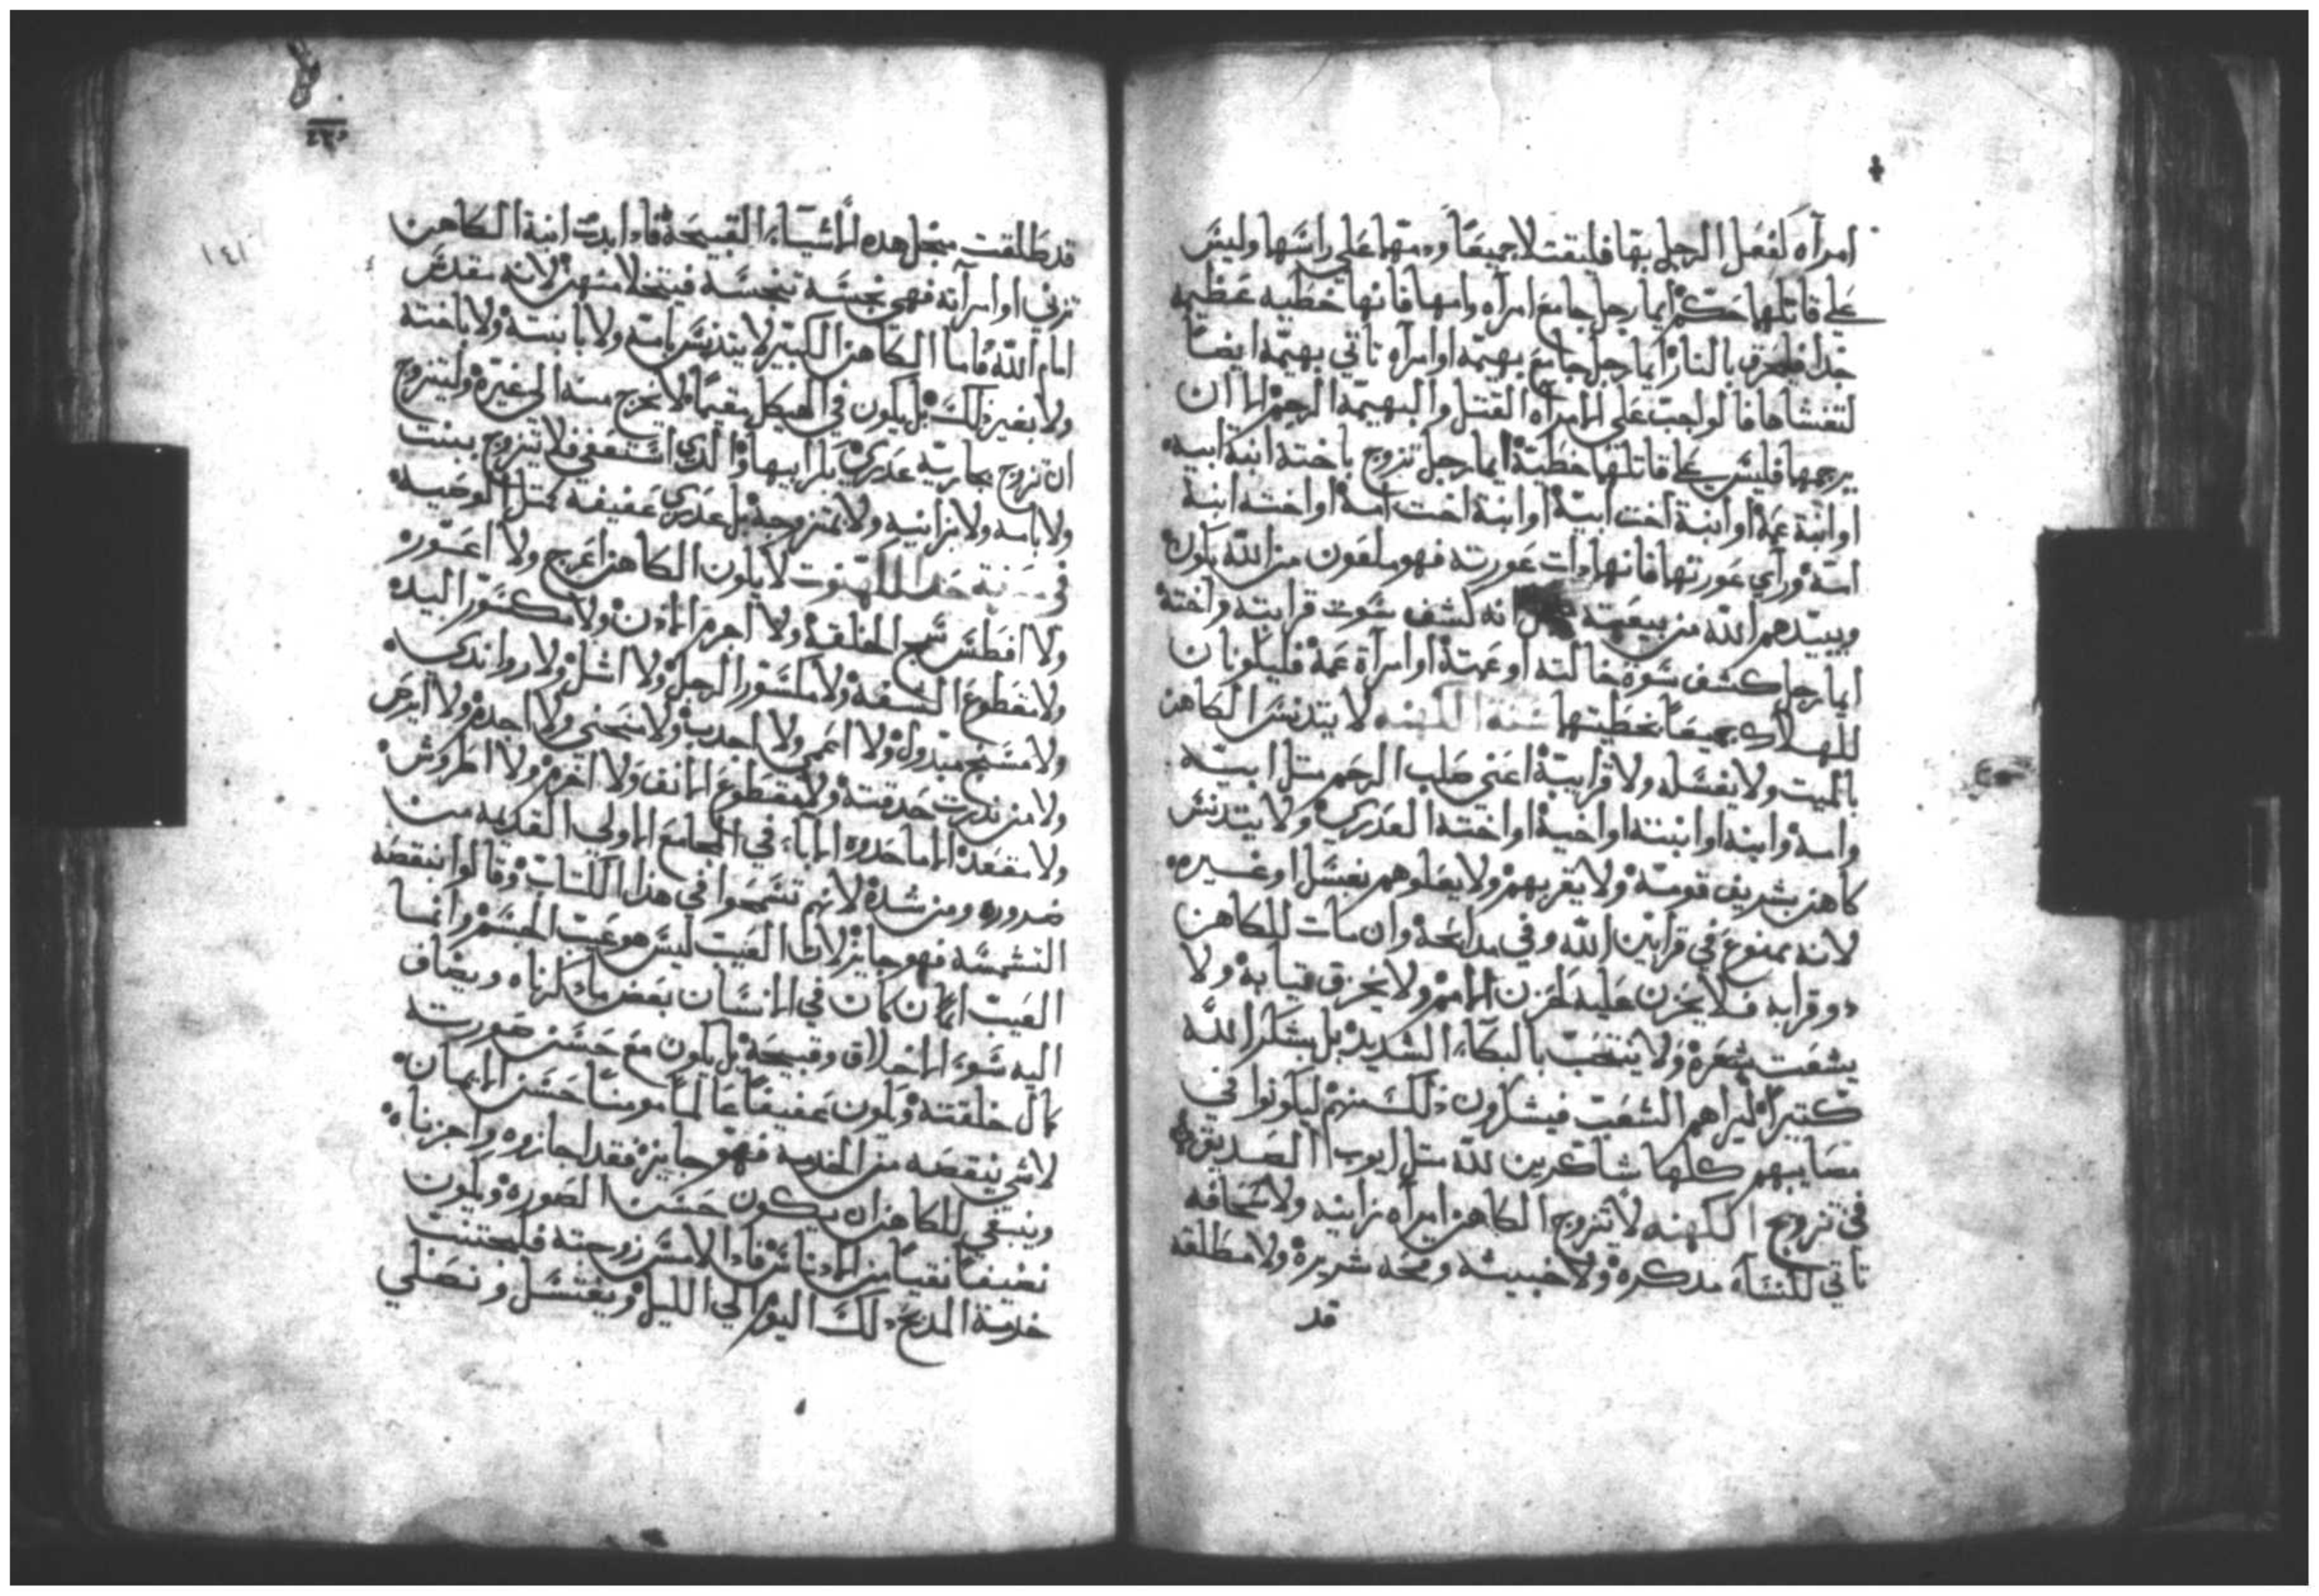 امرآه كفعل الرجل بها فليقتلا جميعًا ودمتهما على راسها وليس
على قاتلهما حكم ايما رجل جامع امرآه وامها فانها خطيه عظيمه
جدا فليحرق بالنار ايما رجل جامع بهيمه او امرآه تاتي بهيمه ايضًا
لتغشاها فالواجب على الامرآه القتل والبهيمه الرجم الا ان
يرجمها فليس على قاتلها خطية ايما رجل تزوج باخته ابنة ابيه
او ابنة عمه او ابنة اخت ابيه او ابنة اخت امه او اخته ابنة
امه وراي عورتها فانها دات عورته فهو ملعون من الله يكون
ويبيدهم الله من بيعته انه كشف سوت قرابته واخته
ايما رجل كشف سوة خالته او عمته او امرآة عمه فليكونان
للهلاك جميعًا بخطيتهما سنة الكهنه لا يتدنس الكاهن
بالميت ولا يغسله ولا قرابية اعني صلب الرحم مثل ابيه
وامه وابنه او ابنته او اخيه او اخته العدري ولا يتدنس
كاهن بشريف قومه ولا يقربهم ولا يصلوهم بغسل او غيره
لانه ممنوع في قرابين الله وفي مدابحه وان مات للكاهن
دو قرابه فلا يحزن عليه كحزن الامم ولا يخرق تيابه ولا
يشعت شعره ولا ينتحب بالبكاء الشديد بل يشكر الله
كتيرًا ليراهم الشعب فيشكرون ذلك منهم ليكونوا في
مصايبهم كلها شاكرين لله متل ايوب الصديق
في تزوج الكهنه لا تتزوج الكاهن امرآه زانيه ولا سحاقه
تاتي للنسآء مدكره ولا خبيته وقحه شريره ولا مطلقه
قد
قد طلقت من جل هده الاشياء القبيحة فادا بدت ابنة الكاهن
تزني او امرآته فهي نجسه تنجسه فيتخلا منهن لانه مقدس
امام الله فاما الكاهن الكبير لا يتدنس بامه ولا بابنته ولا باخته
ولا بغير ذلك بل يكون في الهيكل مقيمًا ولا يخرج منه الى غيره وليتزوج
ان تزوج بجاريه عدري بكر ابيها والدي استعفى فلا يتزوج ببنت
ولا بامه ولا بزانيه ولا بمتزوجة بل عدري عفيفه كمتل الوصيه
في حد الكهنوت لا يكون الكاهن اعرج ولا اعور
ولا افطس سمج الخلقة ولا اجرم الادن ولا مكسور اليد
ولا مقطوع الشفه ولا مكسور الرجل ولا اشل ولا رواندي
ولا مشنج مبدول ولا اعمى ولا احدب ولا منحني ولا اجده ولا ابرص
ولا من ندرت حدقته ولا مقطوع الانف ولا اخرم ولا اطروش
ولا مقعد الا ما حدوه الاباء في المجامع الاولى القديمه من
ضروره ومن شده لانهم تسمحوا في هذا الكتاب وقالوا بنقصه
الشمسه فهو جايز لان العيب ليس هو عيب الجسم وانما
العيب ان كان في الانسان بعض ما دكرناه ويضاف
اليه سوء الاخلاق وقبيحة بل يكون مع حسن صورته
كمال خلقته ويكون عفيفًا عالمًا مومنًا حسن الايمان
لاشي ينقصه من الخدمه فهو جايز فقد اجازوه واجزناه
وينبغي للكاهن ان يكون حسن الصوره ويكون
نضيفًا نقيًا من الادناس فادا لامس زوجته فليجتنب
خدمة المدبح دلك اليوم الي الليل ويغتسل ونصلي